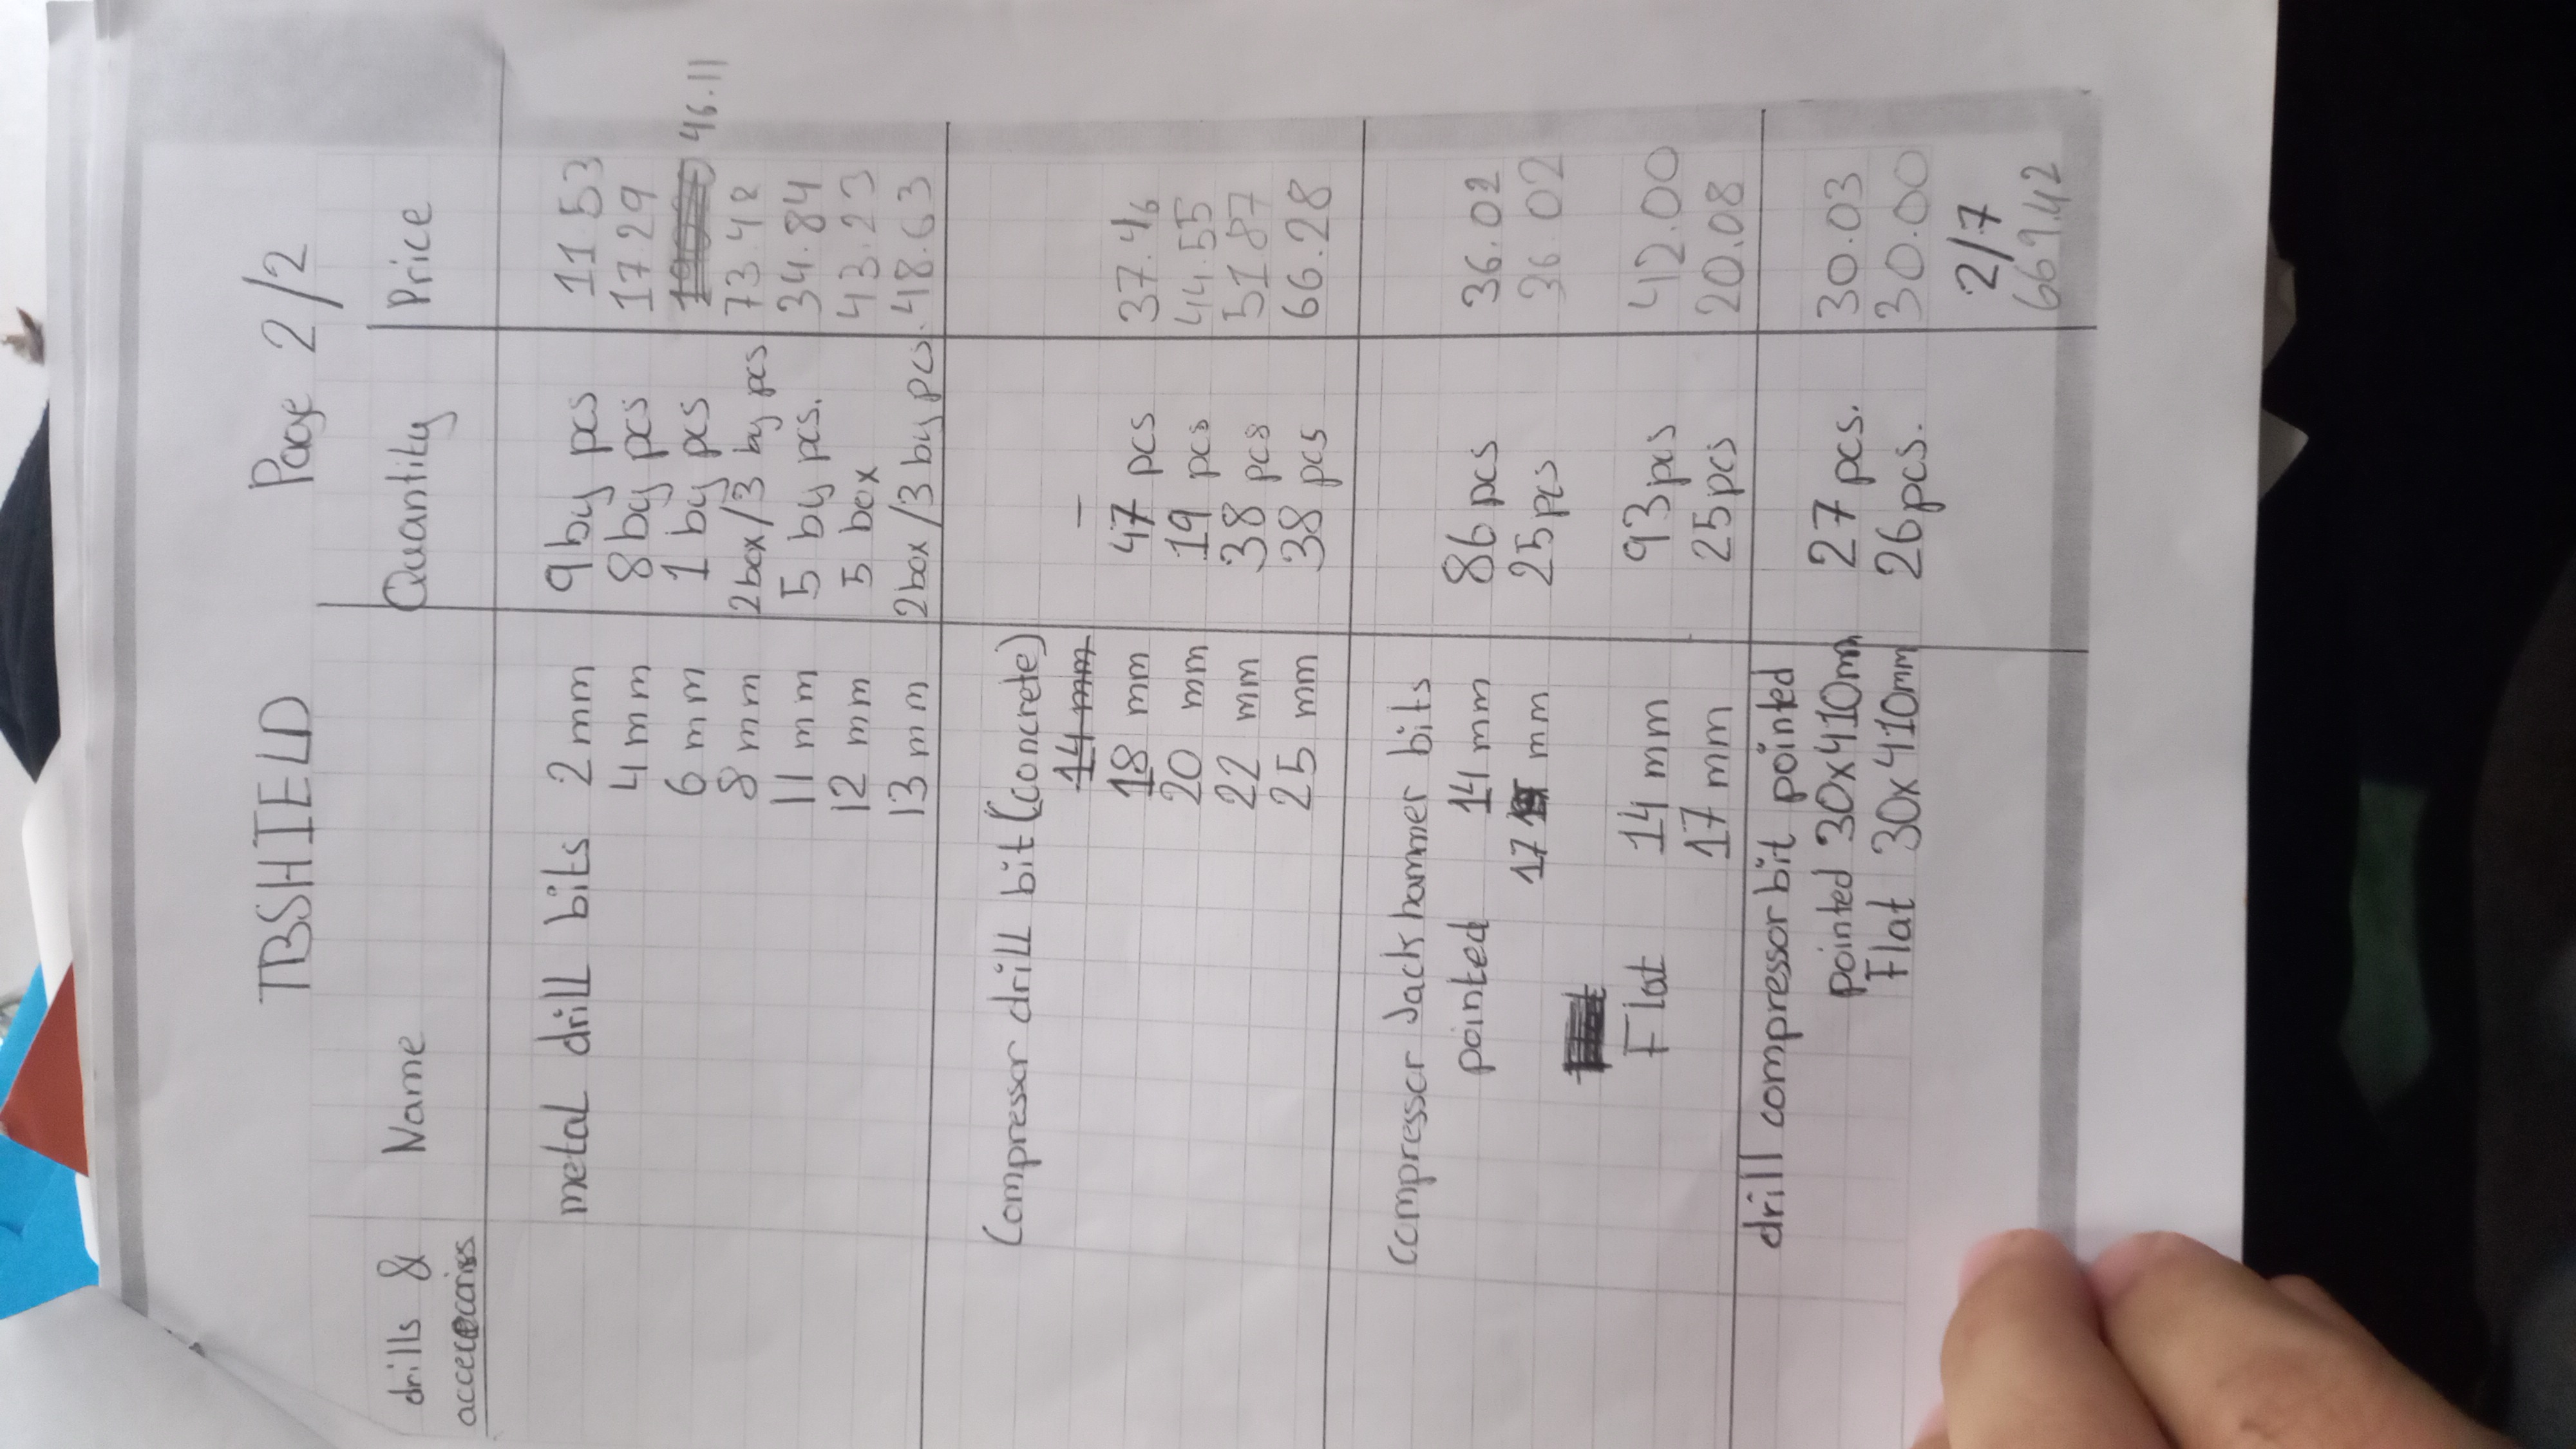 TBSHIELD Page 2/2
drills & Name Quantity Price
metal drill bits 2 mm 9 by pcs 11.53
4 mm 8 by pcs 17.29
6 mm 1 by pcs 46.11
8 mm 2box/3 by pcs 73.48
11 mm 5 by pcs. 34.84
12 mm 5 box 43.23
13 mm 2box/3 by pcs. 48.63
Compressor drill bit (concrete)
14 mm –
18 mm 47 pcs 37.46
20 mm 19 pcs 44.55
22 mm 38 pcs 51.87
25 mm 38 pcs 66.28
Compressor Jack hammer bits
pointed 14 mm 86 pcs 36.02
17 mm 25 pcs 36.02
Flat 14 mm 93 pcs 42.00
17 mm 25 pcs 20.08
drill compressor bit pointed
pointed 30x410mm 27 pcs. 30.03
Flat 30x410mm 26 pcs. 30.00
2/7
669.42